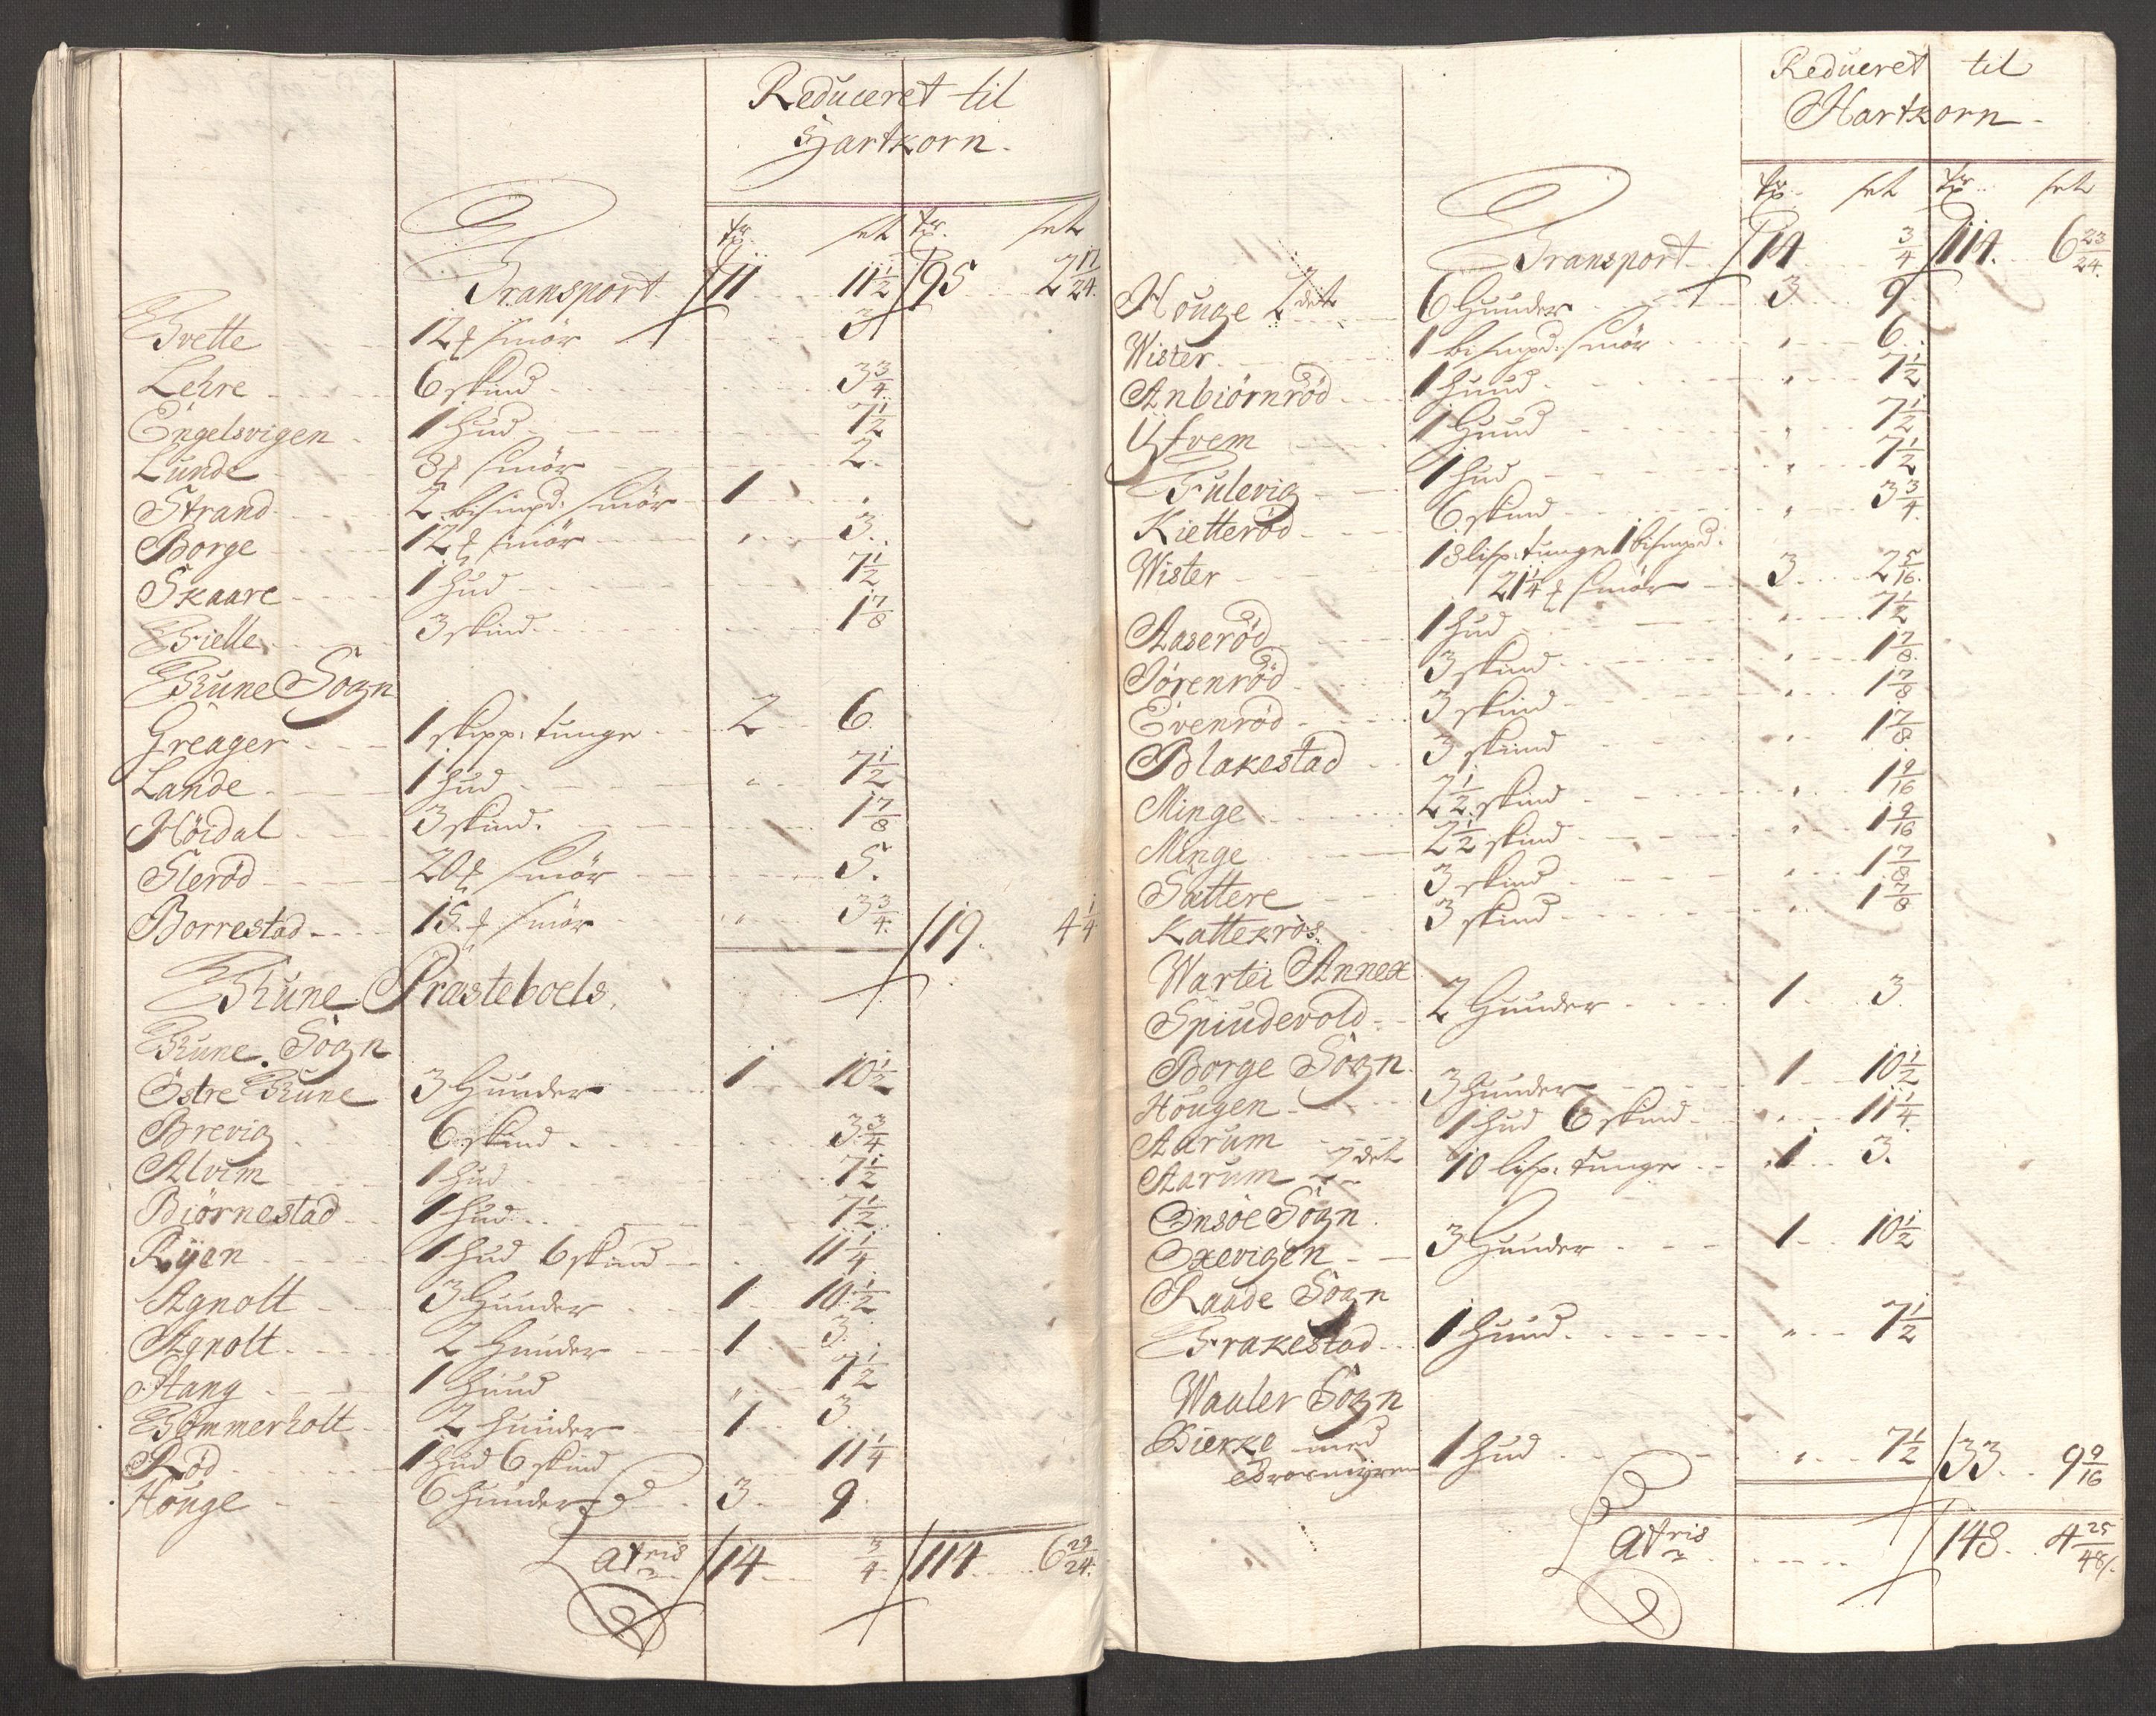 Reduceret til
Hartkorn.
tr. set tr. set
Transport 11 11 1/2 95 2 17/24.
Tvette 12 ℔ smör 3
Lehre 6 skind 3 3/4
Engelsvigen 1 hud 7 1/2
Lunde 8 ℔ smör 2.
Strand 2 bismpd: smör 1 .
Borge 12 ℔ smör 3.
Skaare 1 hud 7 1/2
Tielle 3 skind 1 7/8
Thune Sogn
Greager 1 skipp: tunge 2 6.
Lande 1 hud 7 1/2
Höidal 3 skind. 1 7/8
Slerød 20 ℔ smör 5.
Borrestad 15 ℔ smör 3 3/4. 19. 4 1/4
Thune Præsteboels.
Thune Sogn
Östre Thune 3 Huuder 1 10 1/2
Brevig 6 skind 3 3/4
Alvim 1 hud 7 1/2
Biörnestad 1 hud 7 1/2
Rÿen 1 hud 6 skind 11 1/4
Agnolt 3 Huuder 1 10 1/2
Agnolt 2 Huuder 1 3.
Stang 1 Huud 7 1/2
Tommerholt 2 huuder 1 3
Röd 1 hud 6 skind 11 1/4
Houge 6 huuder 3. 9.
Latris 14 3/4. 114. 6 23/24.
Reduceret til
Hartkorn.
tr. set tr. set
Transport 14 3/4 114. 6 23/24.
Houge 2det 6 Huuder 3 9
Wister 1 bismpd: smör 6.
Anbiörnröd 1 huud 7 1/2
Ÿfvem 1 Huud 7 1/2
Fulevig 1 hud 7 1/2
Kietteröd 6 skind 3 3/4.
Wister 18 lisp: tunge 1 bismpd:
21 1/4 ℔ smör 3 2 5/16.
Aaseröd 1 hud 7 1/2
Sörenröd 3 skind 1 7/8.
Evenröd 3 skind 1 7/8
Blakestad 3 skind 1 7/8
Minge 2 1/2 skind 1 9/16
Minge 2 1/2 skind 1 9/16
Sattere 3 skind 1 7/8
Kattekròs. 3 skind 1 7/8
Wartei Annex
Spiudevold 2 Huuder 1 3.
Borge Sogn.
Hougen 3 Huuder 1 10 1/2
Aarum 1 hud 6 skind 11 1/4
Aarum 2det 10 lisp: tunge 1 3.
Onsöe Sogn.
Oxevigen 3 Huuder 1 10 1/2
Raade Sogn
Frakestad 1 huud 7 1/2
Waaler Sogn
Bierke med
1 hud 7 1/2 33. 9 9/16
Latris 148. 4 25/48.